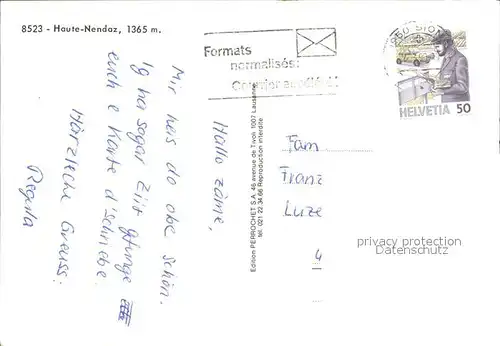 8523 - Haute-Nendaz, 1365 m.
Formats
normalisés:
Courrier accéléré!
1950 SION
HELVETIA 50
Hallo zäme,
Mir heis do obe schön.
Ig ha sogar Ziit gfunge
euch e Karte d'schriebe.
Härzleche Gruess:
Regula
Edition PERROCHET S.A. 46 avenue de Tivoli, 1007 Lausanne
tél. 021 22.34.66 Reproduction interdite
Fam
Franz
Luze
4
privacy protection
www.oldthing.com